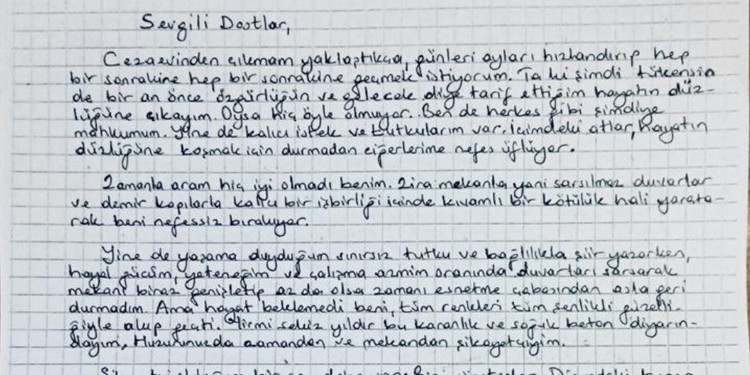 Sevgili Dostlar,
Cezaevinden çıkmam yaklaştıkça, günleri ayları hızlandırıp hep
bir sonrakine hep bir sonrakine geçmek istiyorum. Ta ki şimdi tükensin
de bir an önce özgürlüğün ve gelecek diye tarif ettiğim hayatın düz-
lüğüne çıkayım. Oysa hiç öyle olmuyor. Ben de herkes gibi şimdiye
mahkumum. Yine de kalıcı istek ve tutkularım var. İçimdeki atlar, hayatın
düzlüğüne koşmak için durmadan ciğerlerime nefes üflüyor.
Zamanla aram hiç iyi olmadı benim. Zira mekanla yani sarsılmaz duvarlar
ve demir kapılarla kalıcı bir işbirliği içinde kıvamlı bir kötülük hali yarata-
rak beni nefessiz bırakıyor.
Yine de yaşama duyduğum sınırsız tutku ve bağlılıkla şiir yazarken,
hayal gücüm, yeteneğim ve çalışma azmim oranında duvarları sarsarak
mekanı biraz genişletip az da olsa zamanı esnetme çabasından asla geri
durmadım. Ama hayat beklemedi beni, tüm renkleri tüm şenlikli güzelli-
ğiyle akıp geçti. Yirmi sekiz yıldır bu karanlık ve soğuk beton diyarın-
dayım. Huzurunuzda zamandan ve mekandan şikayetçiyim.